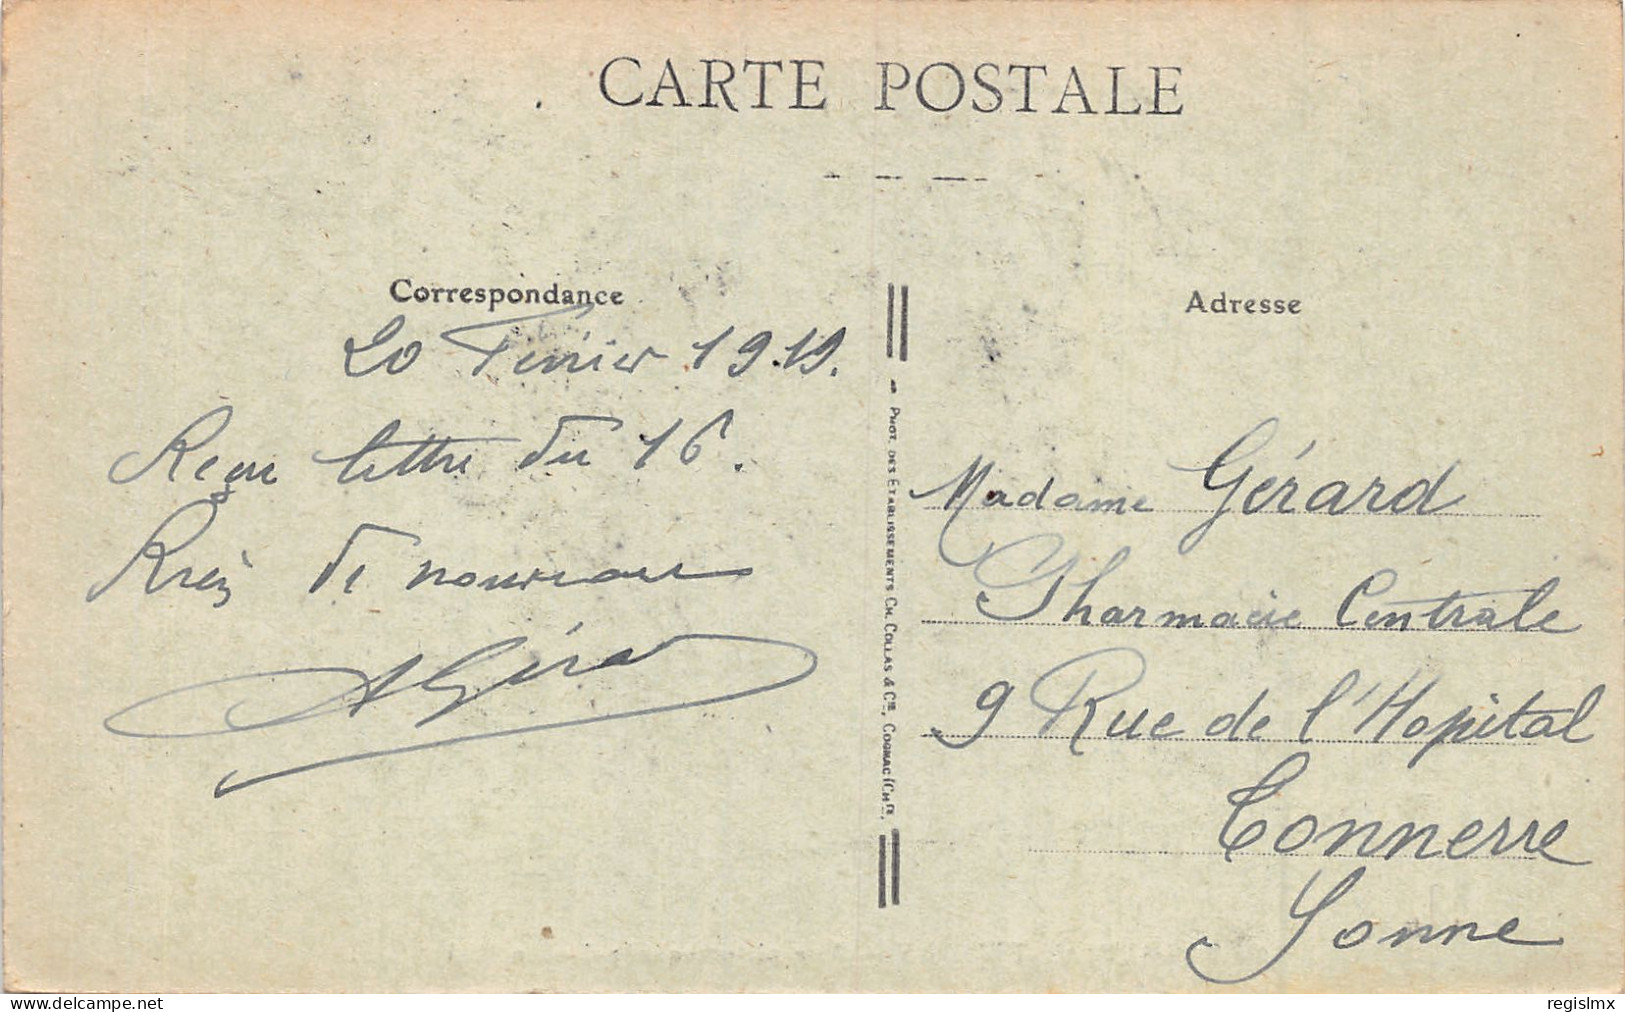 CARTE POSTALE
Correspondance
20 Février 1919.
Reçu lettre du 16.
Rien de nouveau
AGérard
PHOT. DES ETABLISSEMENTS CH. COLLAS & Cie, COGNAC (CHte.
Adresse
Madame Gérard
Pharmacie Centrale
9 Rue de l'Hopital
Tonnerre
Yonne
www.delcampe.net
regislmx